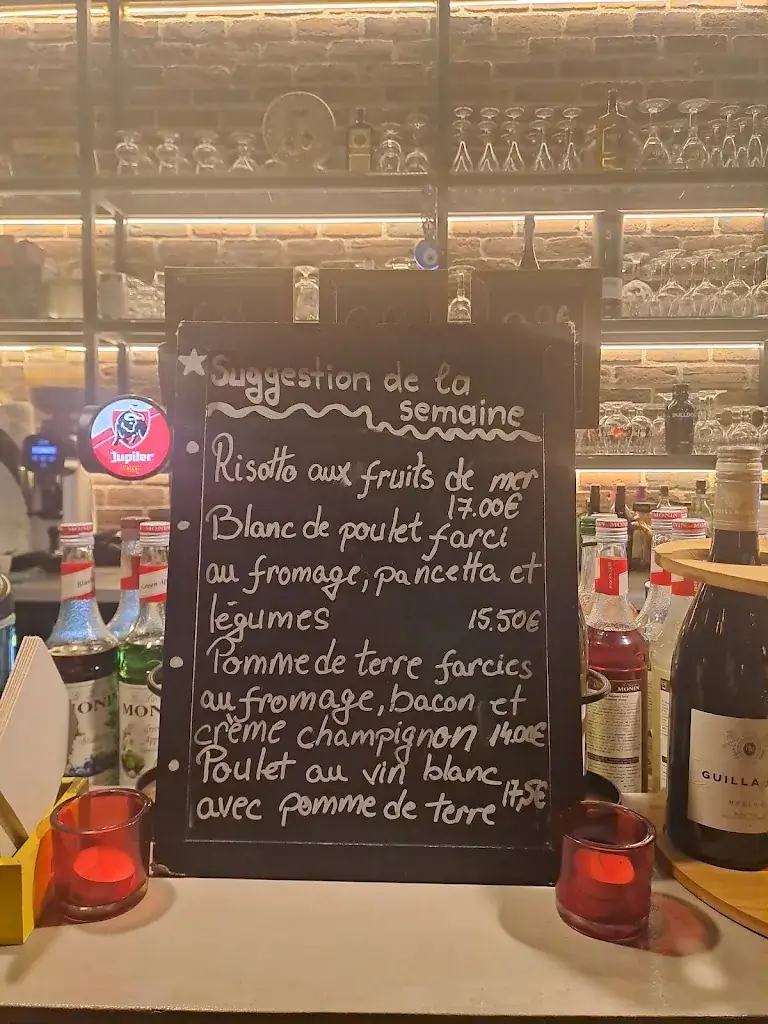 Suggestion de la
semaine
Risotto aux fruits de mer
17.00€
Blanc de poulet farci
au fromage, pancetta et
légumes 15.50€
Pomme de terre farcies
au fromage, bacon et
crème champignon 14.00€
Poulet au vin blanc
avec pomme de terre 17,5€
Jupiler
MONIN
MONIN
GUILLA